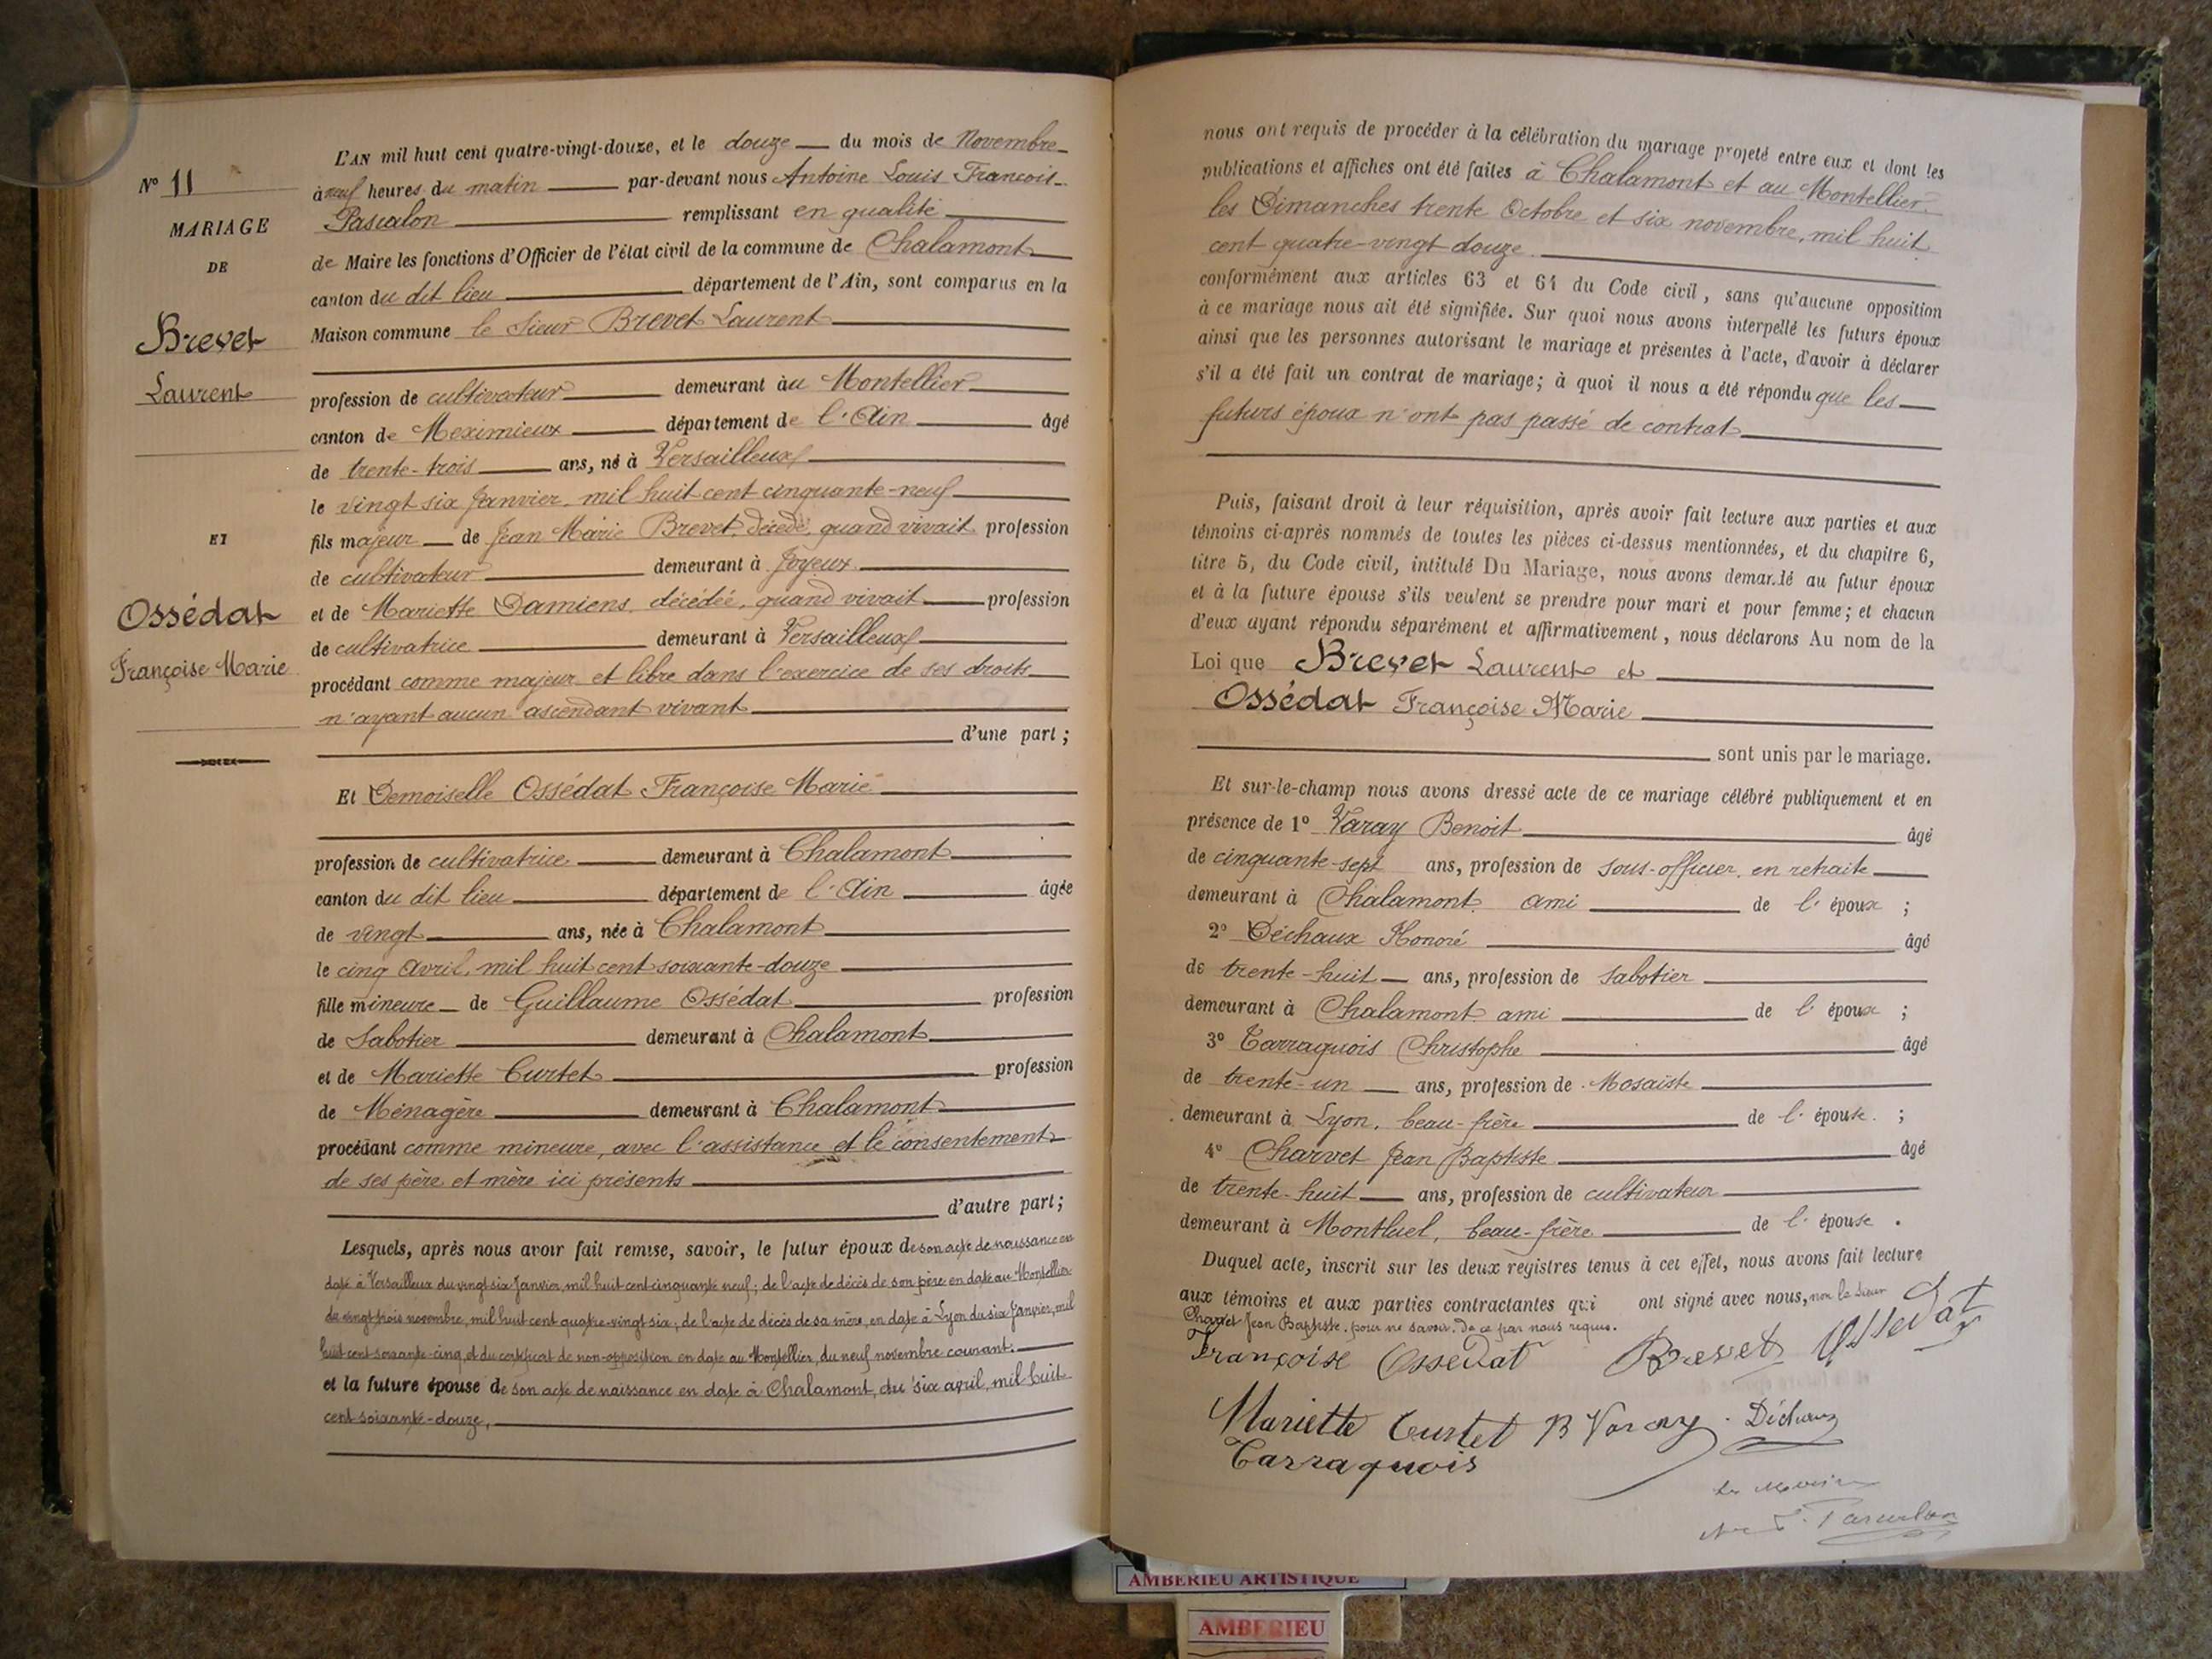 N° 11
MARIAGE
DE
Brevet
Laurent
ET
Ossédat
Françoise Marie
L'AN mil huit cent quatre-vingt-douze, et le douze du mois de Novembre
à neuf heures du matin par-devant nous Antoine Louis François
Pascalon remplissant en qualité
de Maire les fonctions d'Officier de l'état civil de la commune de Chalamont
canton du dit lieu département de l'Ain, sont comparus en la
Maison commune le Sieur Brevet Laurent
profession de cultivateur demeurant au Montellier
canton de Meximieux département de l'Ain âgé
de trente-trois ans, né à Versailleux
le vingt six Janvier, mil huit cent cinquante-neuf
fils majeur de Jean Marie Brevet, décédé, quand vivait profession
de cultivateur demeurant à Joyeux
et de Mariette Damiens, décédée, quand vivait profession
de cultivatrice demeurant à Versailleux
procédant comme majeur et libre dans l'exercice de ses droits
n'ayant aucun ascendant vivant
d'une part ;
Et Demoiselle Ossédat Françoise Marie
profession de cultivatrice demeurant à Chalamont
canton du dit lieu département de l'Ain âgée
de vingt ans, née à Chalamont
le cinq avril, mil huit cent soixante-douze
fille mineure de Guillaume Ossédat profession
de Sabotier demeurant à Chalamont
et de Mariette Curtet profession
de Ménagère demeurant à Chalamont
procédant comme mineure, avec l'assistance et le consentement
de ses père et mère ici présents
d'autre part ;
Lesquels, après nous avoir fait remise, savoir, le futur époux de son acte de naissance en
date à Versailleux du vingt six Janvier, mil huit cent cinquante neuf ; de l'acte de décès de son père en date au Montellier
du vingt trois novembre, mil huit cent quatre-vingt six ; de l'acte de décès de sa mère, en date à Lyon du six Janvier, mil
huit cent soixante-cinq, et du certificat de non-opposition en date au Montellier, du neuf novembre courant.
et la future épouse de son acte de naissance en date à Chalamont, du six avril, mil huit
cent soixante-douze,
nous ont requis de procéder à la célébration du mariage projeté entre eux et dont les
publications et affiches ont été faites à Chalamont et au Montellier
les Dimanches trente Octobre et six novembre, mil huit
cent quatre-vingt douze.
conformément aux articles 63 et 64 du Code civil, sans qu'aucune opposition
à ce mariage nous ait été signifiée. Sur quoi nous avons interpellé les futurs époux
ainsi que les personnes autorisant le mariage et présentes à l'acte, d'avoir à déclarer
s'il a été fait un contrat de mariage ; à quoi il nous a été répondu que les
futurs époux n'ont pas passé de contrat
Puis, faisant droit à leur réquisition, après avoir fait lecture aux parties et aux
témoins ci-après nommés de toutes les pièces ci-dessus mentionnées, et du chapitre 6,
titre 5, du Code civil, intitulé Du Mariage, nous avons demandé au futur époux
et à la future épouse s'ils veulent se prendre pour mari et pour femme ; et chacun
d'eux ayant répondu séparément et affirmativement, nous déclarons Au nom de la
Loi que Brevet Laurent et
Ossédat Françoise Marie
sont unis par le mariage.
Et sur-le-champ nous avons dressé acte de ce mariage célébré publiquement et en
présence de 1° Varay Benoit âgé
de cinquante-sept ans, profession de sous-officier en retraite
demeurant à Chalamont ami de l'époux ;
2° Déchaux Honoré âgé
de trente-huit ans, profession de Sabotier
demeurant à Chalamont ami de l'époux ;
3° Tarraquois Christophe âgé
de trente-un ans, profession de Mosaïste
demeurant à Lyon, beau-frère de l'épouse. ;
4° Charvet Jean Baptiste âgé
de trente-huit ans, profession de cultivateur
demeurant à Montluel, beau-frère de l'épouse.
Duquel acte, inscrit sur les deux registres tenus à cet effet, nous avons fait lecture
aux témoins et aux parties contractantes qui ont signé avec nous, non le Sieur
Charvet Jean Baptiste. pour ne savoir. De ce par nous requis.
Françoise Ossedat Brevet Ossedat
Mariette Curtet B Varay Déchaux
Tarraquois
Le Maire
Pascalon
AMBERIEU ARTISTIQUE
AMBERIEU